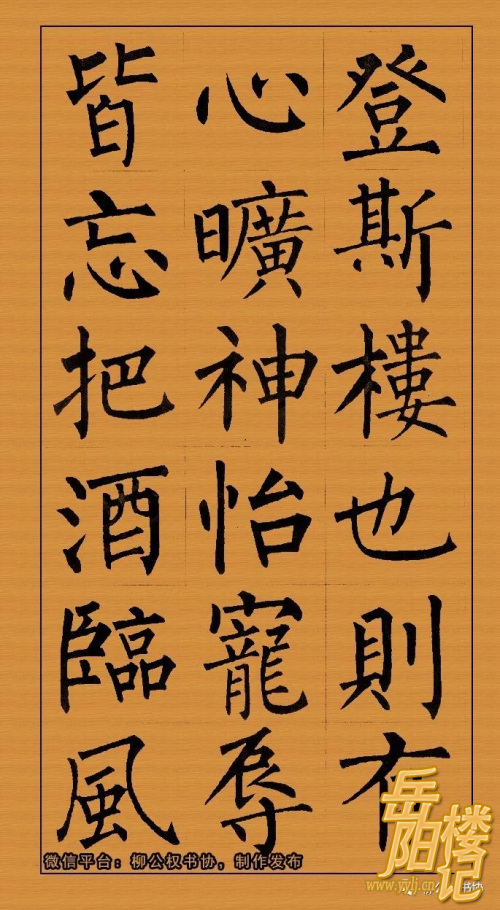 登斯樓也則有
心曠神怡寵辱
皆忘把酒臨風
微信平台：柳公权书协，制作发布
岳阳楼记
www.yylj.cn
书协